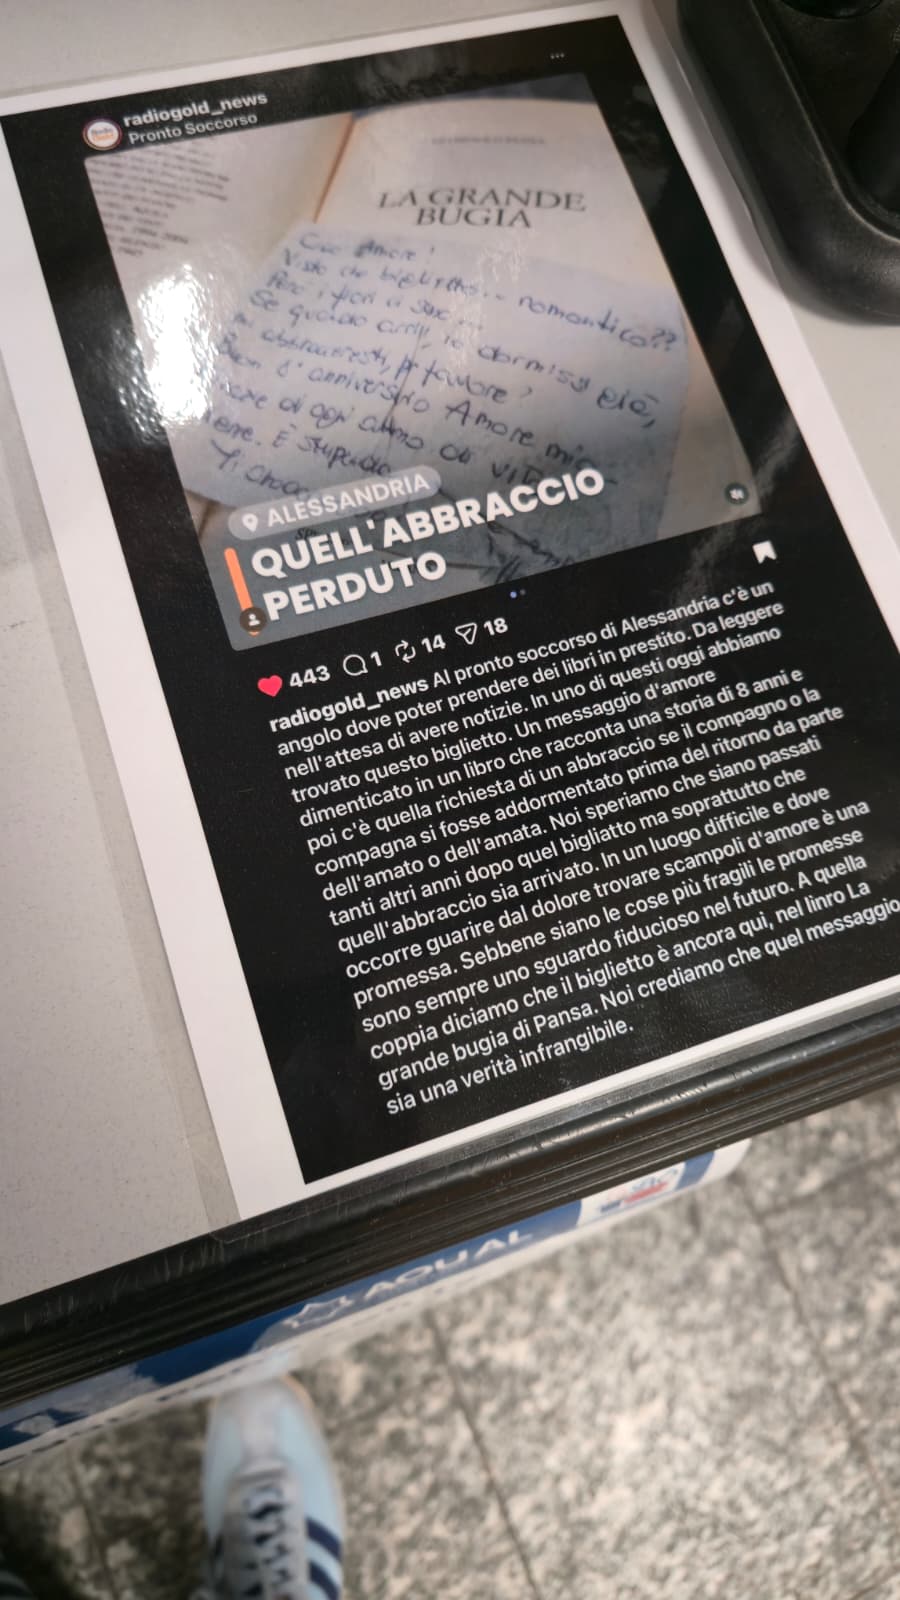 radiogold_news
Pronto Soccorso
LA GRANDE
BUGIA
Ciao Amore!
Visto che bigliettino... romantico??
Però i fiori ci sono
Se quando arrivi, io dormissi già,
mi abbracceresti, per favore?
Buon 8° anniversario Amore mio
di ogi anno di vita
È stupendo
Ti
ALESSANDRIA
QUELL'ABBRACCIO
PERDUTO
443 1 14 18
radiogold_news Al pronto soccorso di Alessandria c'è un
angolo dove poter prendere dei libri in prestito. Da leggere
nell'attesa di avere notizie. In uno di questi oggi abbiamo
trovato questo biglietto. Un messaggio d'amore
dimenticato in un libro che racconta una storia di 8 anni e
poi c'è quella richiesta di un abbraccio se il compagno o la
compagna si fosse addormentato prima del ritorno da parte
dell'amato o dell'amata. Noi speriamo che siano passati
tanti altri anni dopo quel bigliatto ma soprattutto che
quell'abbraccio sia arrivato. In un luogo difficile e dove
occorre guarire dal dolore trovare scampoli d'amore è una
promessa. Sebbene siano le cose più fragili le promesse
sono sempre uno sguardo fiducioso nel futuro. A quella
coppia diciamo che il biglietto è ancora qui, nel linro La
grande bugia di Pansa. Noi crediamo che quel messaggio
sia una verità infrangibile.
AQUAL